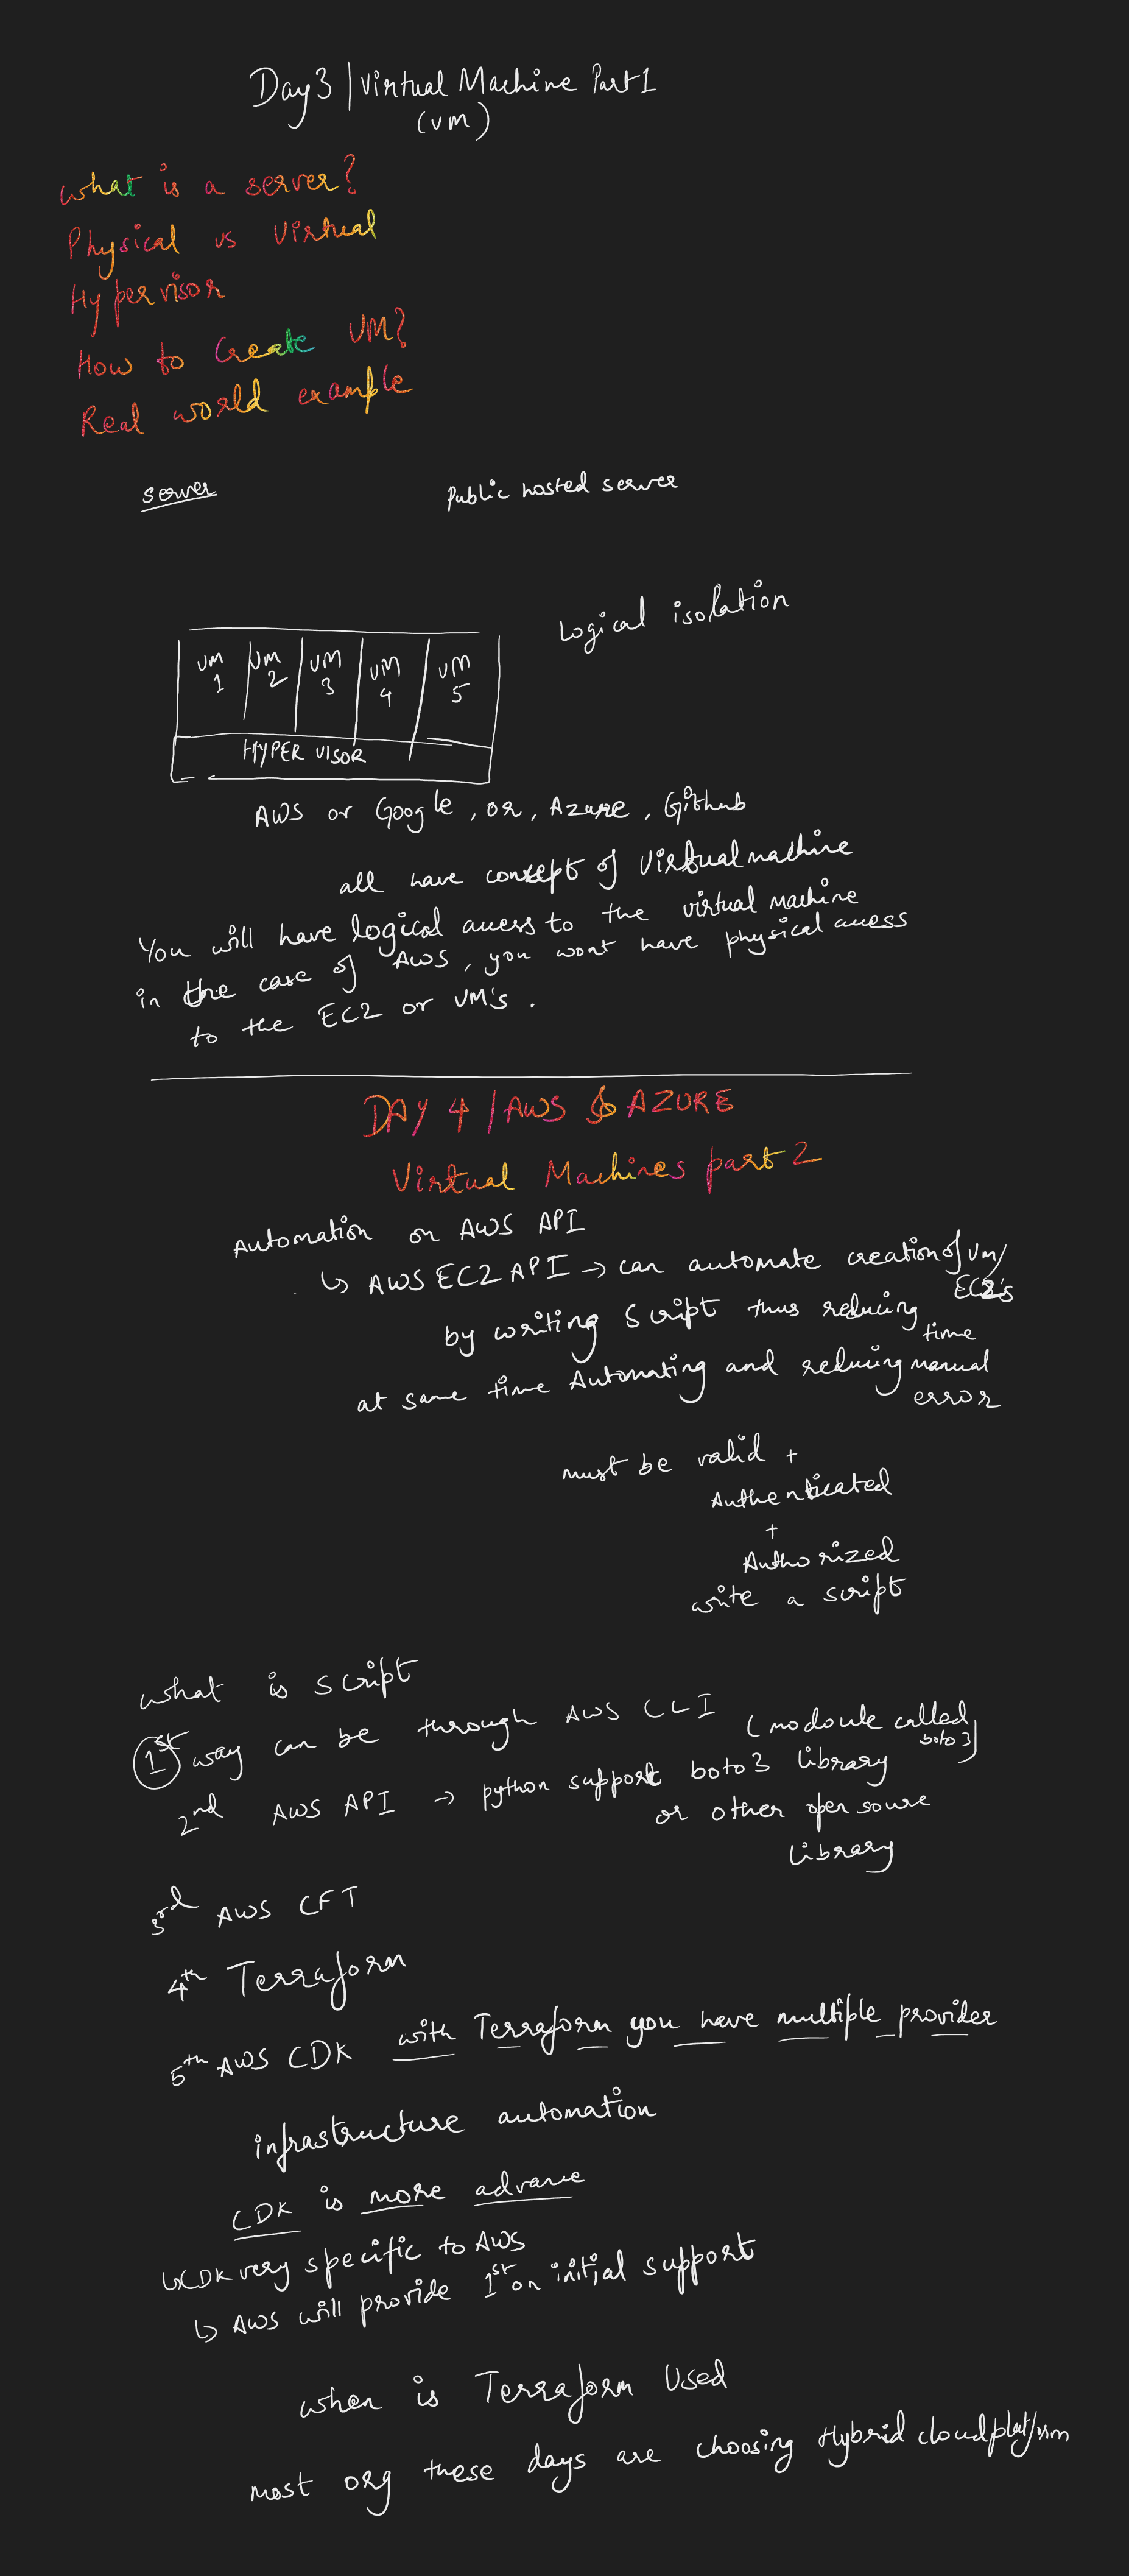 Day 3 | Virtual Machine Part 1
(VM)
what is a server?
Physical vs Virtual
Hypervisor
How to Create VM?
Real world example
server
Public hosted server
Logical isolation
VM 1
VM 2
VM 3
VM 4
VM 5
HYPER VISOR
AWS or Google, or, Azure, Github
all have consept of Virtual machine
You will have logical access to the virtual machine
in the case of AWS, you wont have physical access
to the EC2 or VM's.
DAY 4 / AWS & AZURE
Virtual Machines part 2
Automation on AWS API
↳ AWS EC2 API → can automate creation of VM/
EC2's
by writing Script thus reducing
time
at same time Automating and reducing manual
error
must be valid +
Authenticated
+
Authorized
write a script
what is script
1st way can be through AWS CLI (modoule called
boto3)
2nd AWS API → python support boto3 library
or other open source
library
3rd AWS CFT
4th Terraform
5th AWS CDK with Terraform you have multiple provider
infrastructure automation
CDK is more advance
↳ CDK very specific to AWS
↳ AWS will provide 1st or initial support
when is Terraform Used
most org these days are choosing Hybrid cloud platform